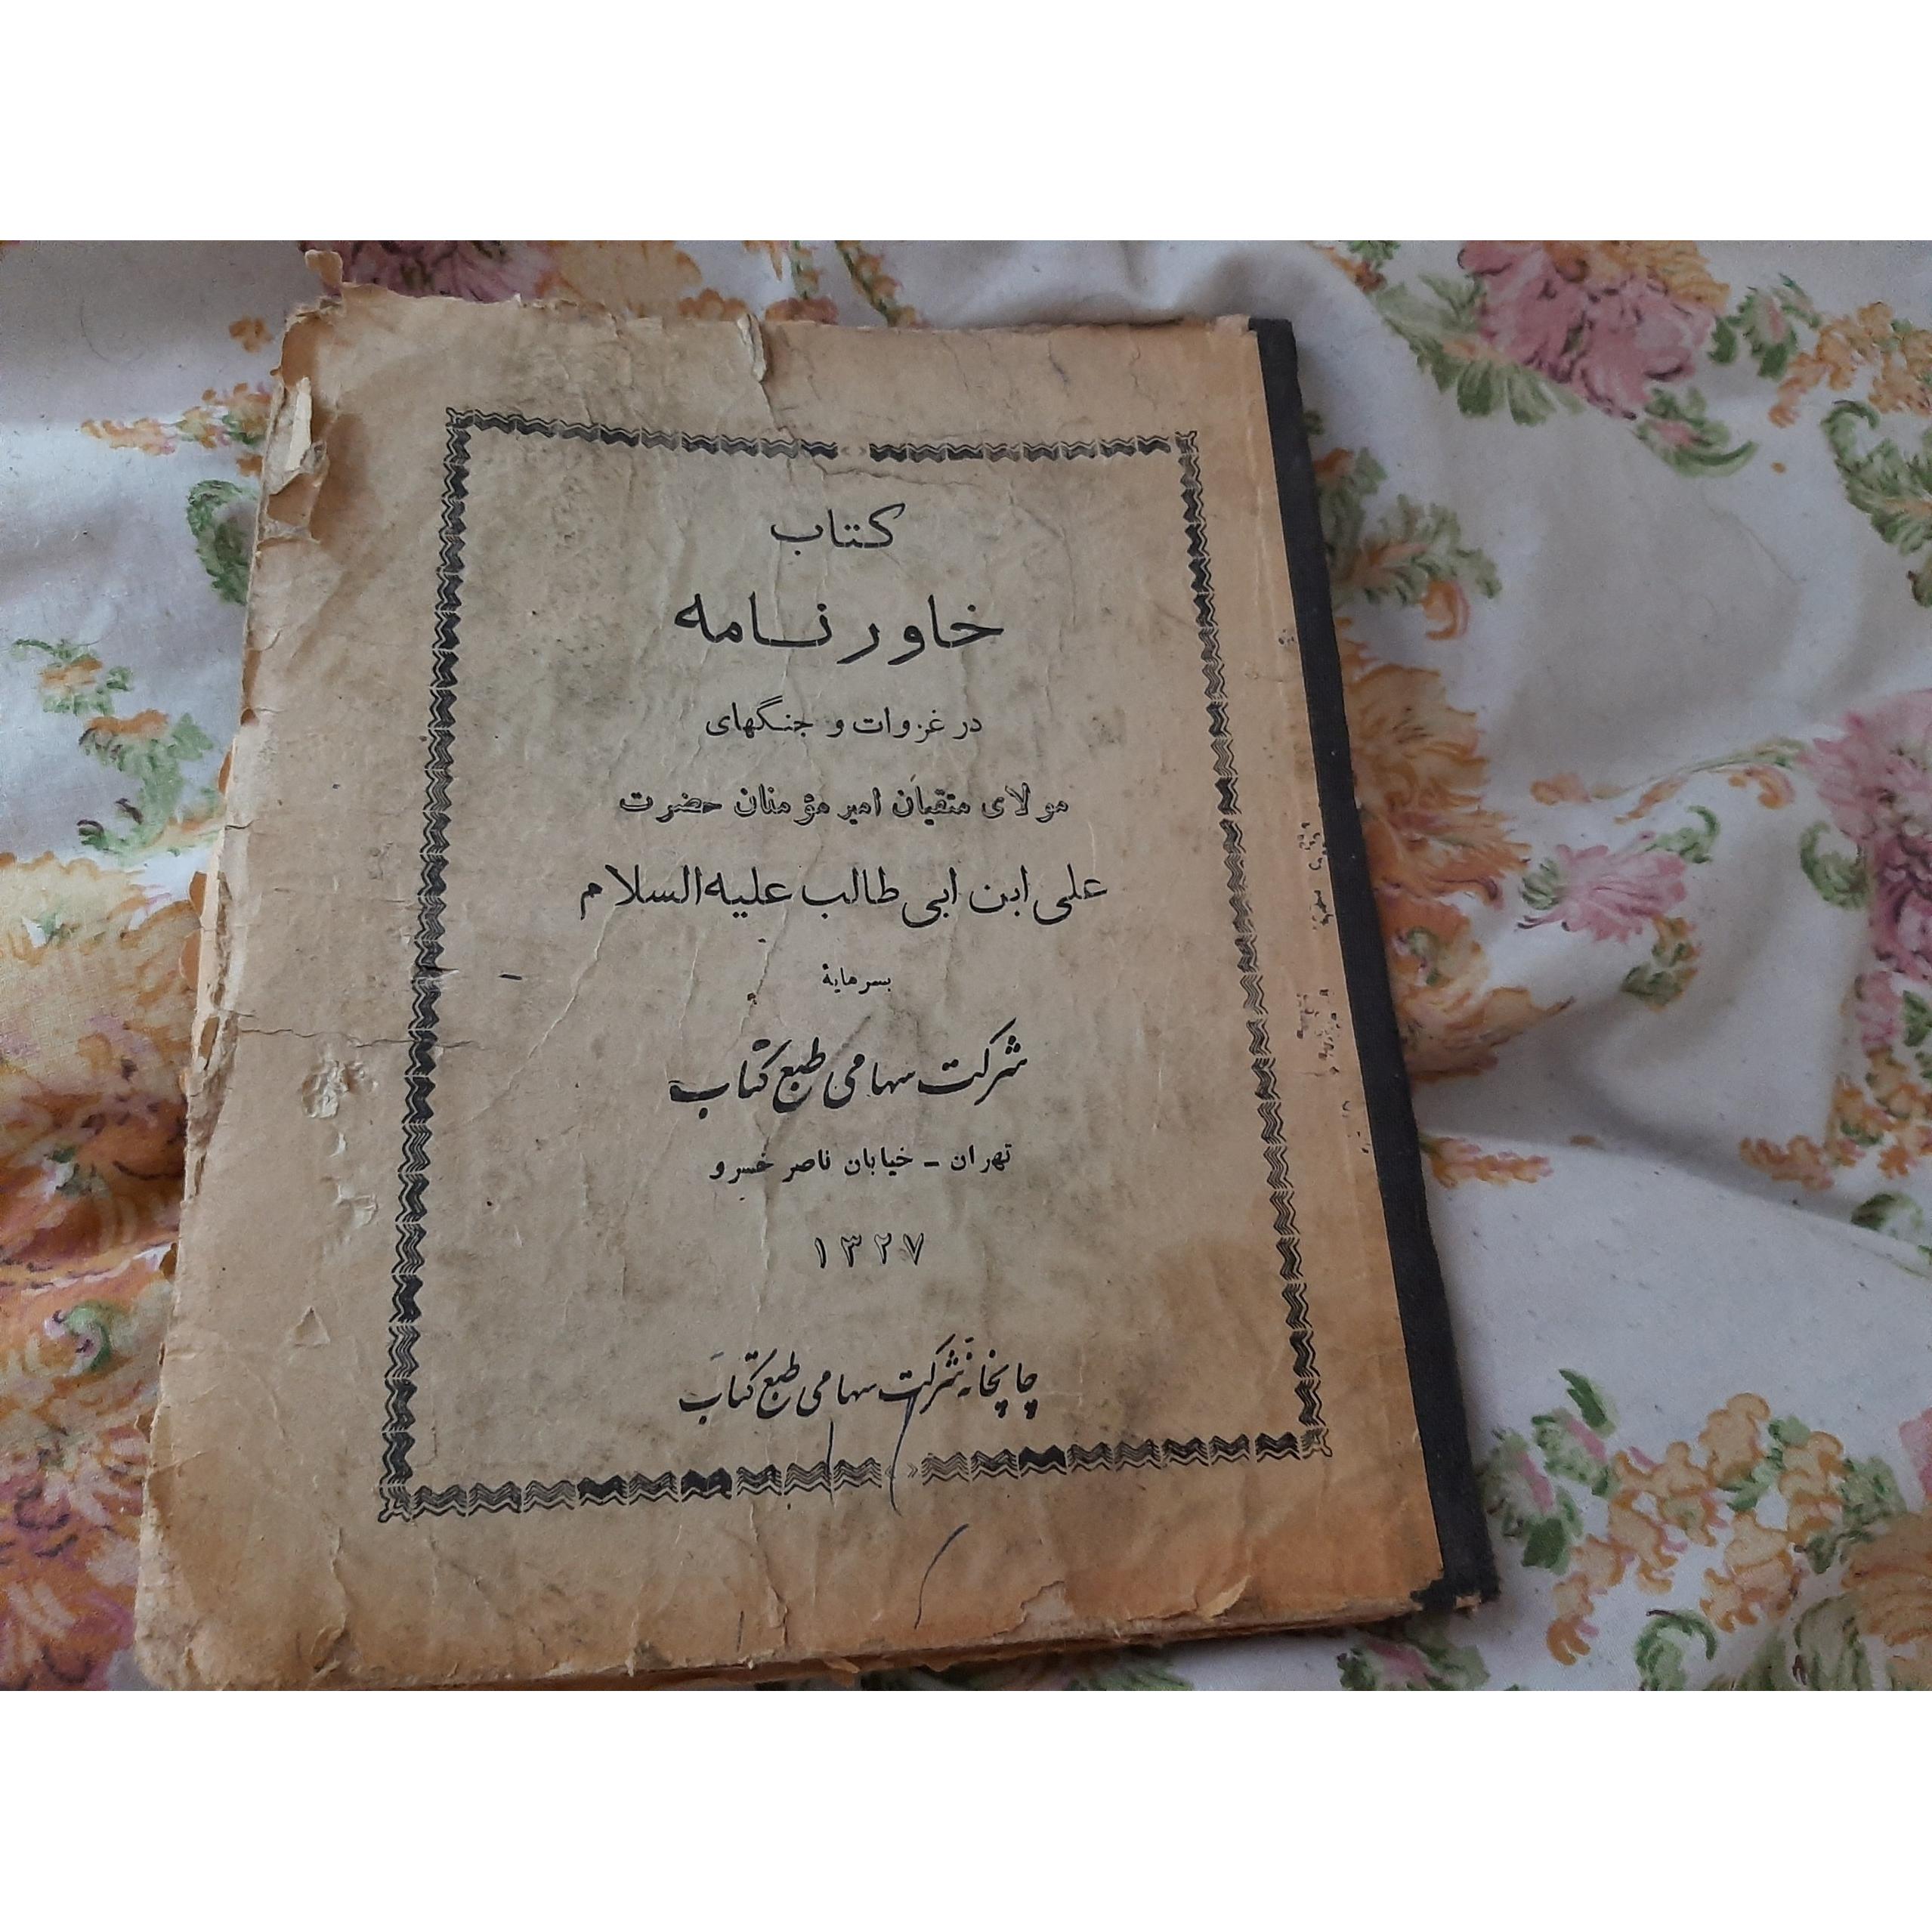 کتاب
خاور نامه
در غزوات و جنگهای
مولای متقیان امیر مؤمنان حضرت
علی ابن ابی طالب علیه‌السلام
بسرمایهٔ
شرکت سهامی طبع کتاب
تهران - خیابان ناصر خسرو
۱۳۲۷
چاپخانهٔ شرکت سهامی طبع کتاب